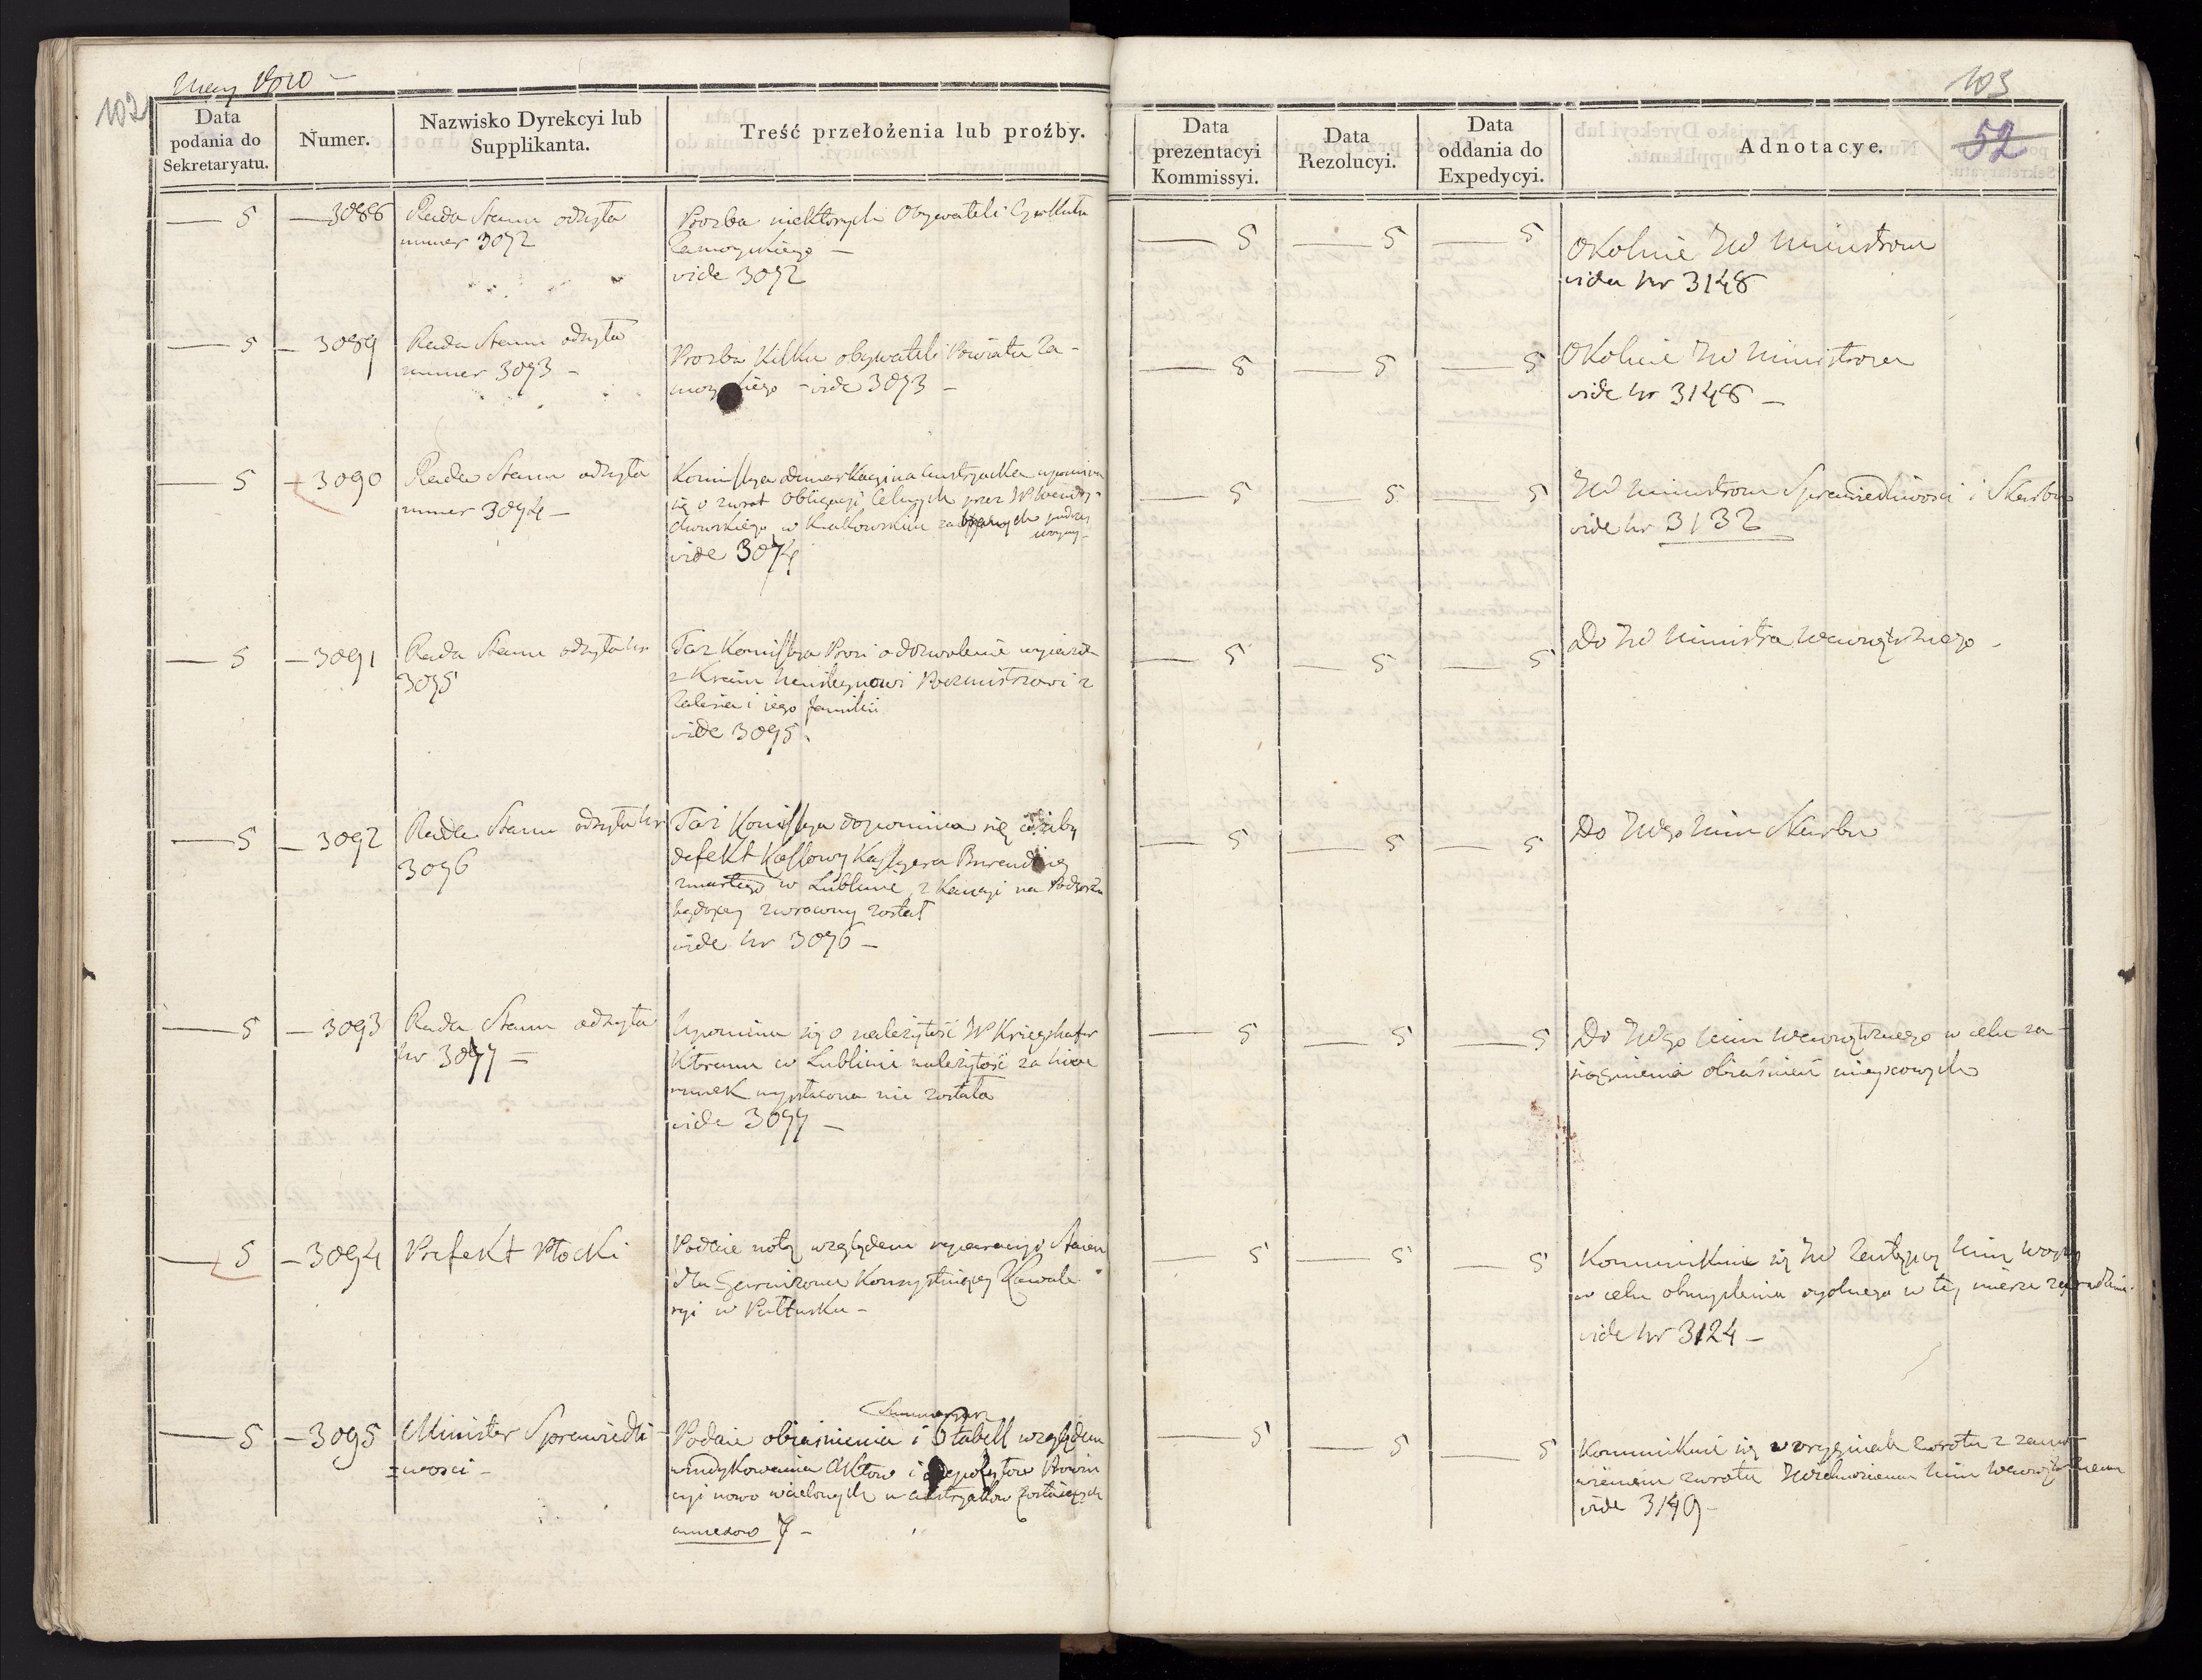 102
May 1810 —
Data
podania do
Sekretaryatu.
Numer.
Nazwisko Dyrekcyi lub
Supplikanta.
Treść przełożenia lub proźby.
— 5
— 3088
Rada Stanu odsyła
numer 3072
Prozba niektorych Obywateli Cyrkułu
Zamoyskiego —
vide 3072
— 5
— 3089
Rada Stanu odsyła
numer 3073 —
Prozba Kilku obywateli Powiatu Za-
moyskiego — vide 3073 —
— 5
— 3090
Rada Stanu odsyła
numer 3074 —
Komissya demarkacyina Austryacka upomina
się o zwrot Obligacyi Celnych przez JP
w Krakowskim zabranych podczas
woyny —
vide 3074
— 5
— 3091
Rada Stanu odsyła Nr
3075
Taż Komissya Prosi o dozwolenie wyiazdu
z Kraiu Poczmistrzowi z
Zalesia i iego familii
vide 3075.
— 5
— 3092
Rada Stanu odsyła Nr
3076
Taż Komissya dopomina się ażeby
defekt Kassowy Kassyera
zmarłego w Lublinie, z Kaucyi na Podgorzu
będącey zwrocony został
vide Nr 3076 —
— 5
— 3093
Rada Stanu odsyła
Nr 3077 =
Upomina się o należytość JP
Ktoremu w Lublinie należytość za
wypłacona nie została
vide 3077 —
— 5
— 3094
Prefekt Płocki
Podaie notę względem reparacyi Staien
dla Garnizonu Konsystuiącey Kawale-
ryi w Pułtusku —
— 5
— 3095
Minister Sprawiedli-
wosci —
Podaie obiasnienia i Stabell względem
windykowania Aktow i depozytow Prowin
cyi nowo wcielonych u Austryakow zostaiących
annexow 7 —
103
52
Data
prezentacyi
Kommissyi.
Data
Rezolucyi.
Data
oddania do
Expedycyi.
Adnotacye.
— 5
— 5
— 5
Okolnie JW Ministrom
vide Nr 3148
— 5
— 5
— 5
Okolnie JW Ministrom
vide Nr 3148 —
— 5
— 5
— 5
JW Ministrom Sprawiedliwosci i Skarbu
vide Nr 3132
— 5
— 5
— 5
Do JW Ministra Wewnętrznego —
— 5
— 5
— 5
Do JWgo Min Skarbu
— 5
— 5
— 5
Do JWgo Min Wewnętrznego w celu za-
siągnienia obiaśnień mieyscowych
— 5
— 5
— 5
Kommunikuie się JW Zastępcy Min Woyny
w celu obmyslenia w tey mierze
vide Nr 3124 —
— 5
— 5
— 5
Kommunikuie się w oryginale zwrotu z zamo-
wieniem zwrotu JWielmożnemu Min Wewnętrznemu
vide 3149 —